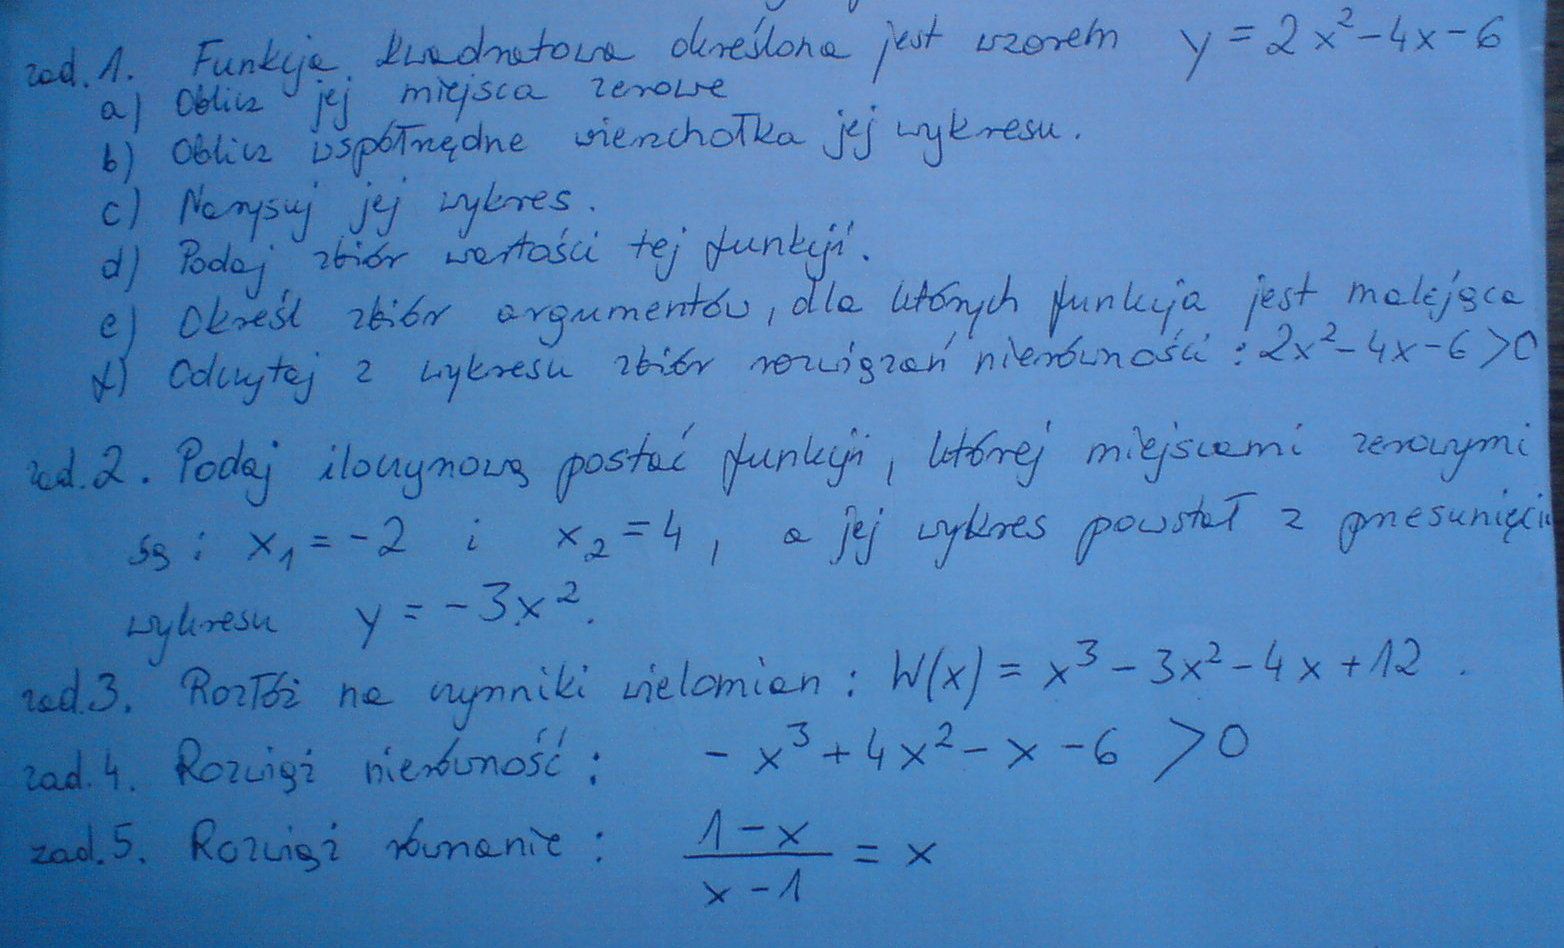 zad. 1. Funkcja kwadratowa określona jest wzorem y = 2x² - 4x - 6
a) Oblicz jej miejsca zerowe
b) Oblicz współrzędne wierzchołka jej wykresu.
c) Narysuj jej wykres.
d) Podaj zbiór wartości tej funkcji.
e) Określ zbiór argumentów, dla których funkcja jest malejąca
f) Odczytaj z wykresu zbiór rozwiązań nierówności : 2x² - 4x - 6 > 0
zad. 2. Podaj iloczynową postać funkcji, której miejscami zerowymi
są : x₁ = -2 i x₂ = 4, a jej wykres powstał z przesunięciu
wykresu y = -3x².
zad. 3. Rozłóż na czynniki wielomian : W(x) = x³ - 3x² - 4x + 12 .
zad. 4. Rozwiąż nierówność : - x³ + 4x² - x - 6 > 0
zad. 5. Rozwiąż równanie : (1 - x)/(x - 1) = x